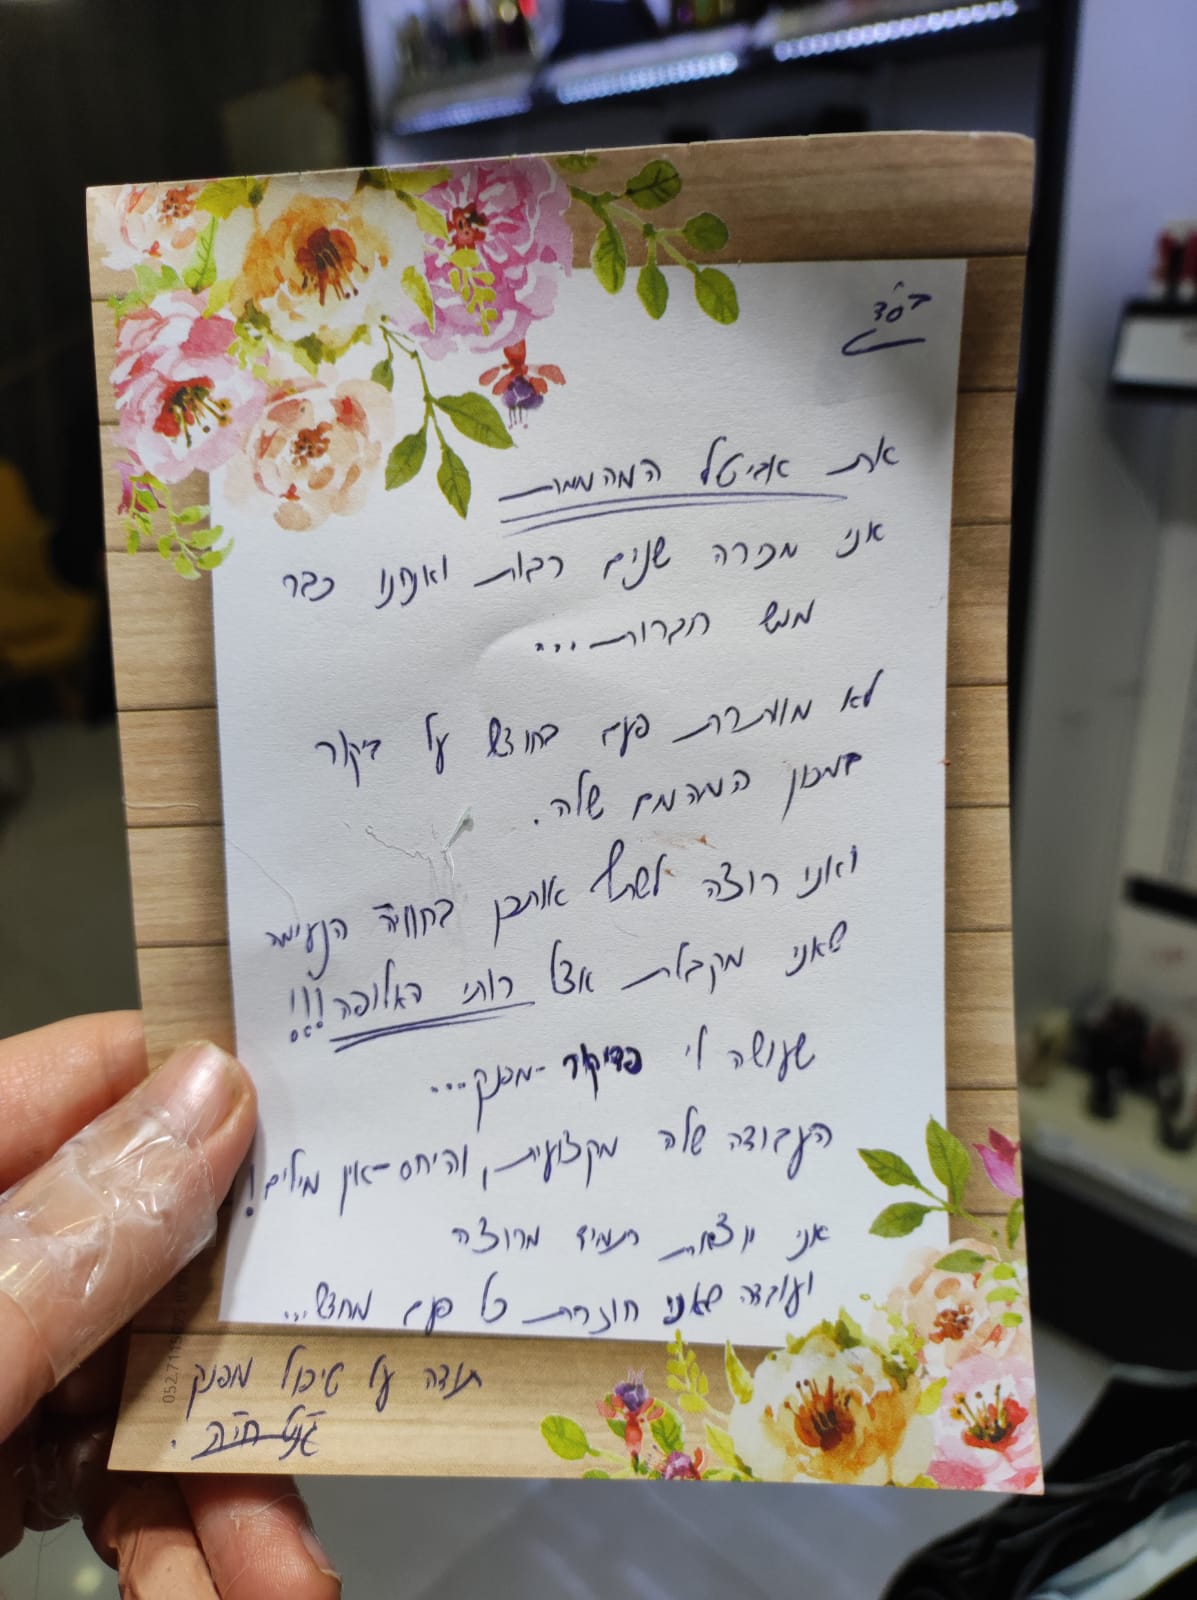 בס"ד
את אביטל המהממת
אני מכירה שנים רבות ואנחנו כבר
ממש חברות...
לא מוותרת פעם בחודש על ביקור
במכון המהמם שלה.
ואני רוצה לשתף אותכן בחוויה הנעימה
שאני מקבלת אצל רותי האלופה!!!
שעושה לי פדיקור-מפנק...
העבודה שלה מקצועית, והיחס-אין מילים!
אני יוצאת תמיד מרוצה
ועובדה שאני חוזרת כל פעם מחדש...
תודה על טיפול מפנק
חיה.
052.71